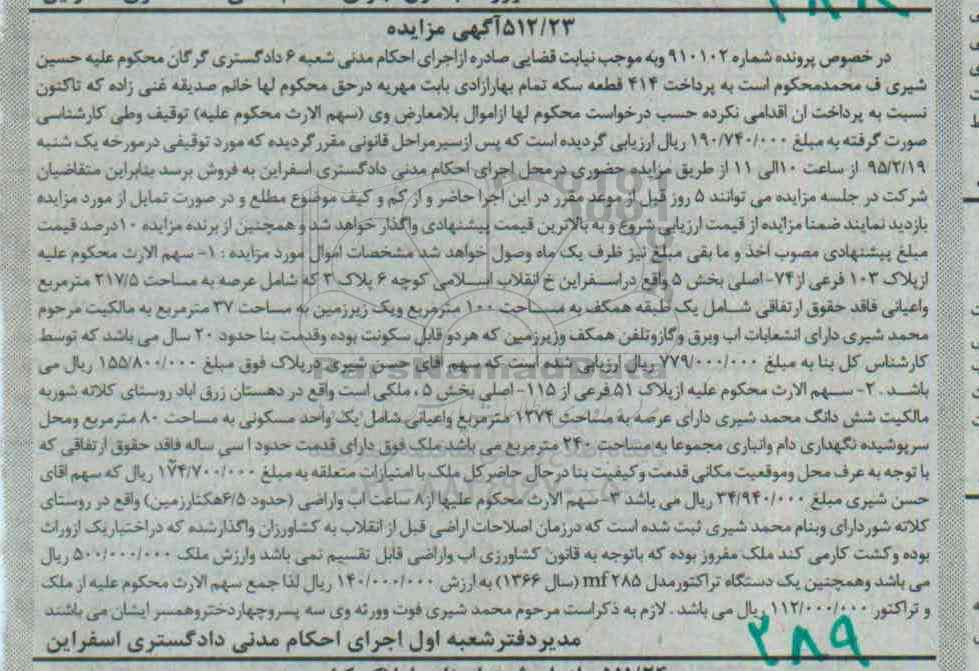 ۵۱۲/۲۳آگهی مزایده
در خصوص پرونده شماره ۹۱۰۱۰۲ وبه موجب نیابت قضایی صادره ازاجرای احکام مدنی شعبه ۶ دادگستری گرگان محکوم علیه حسین
شیری ف محمدمحکوم است به پرداخت ۴۱۴ قطعه سکه تمام بهارازادی بابت مهریه درحق محکوم لها خانم صدیقه غنی زاده که تاکنون
نسبت به پرداخت ان اقدامی نکرده حسب درخواست محکوم لها ازاموال بلامعارض وی (سهم الارث محکوم علیه) توقیف وطی کارشناسی
صورت گرفته به مبلغ ۱۹۰/۷۴۰/۰۰۰ ریال ارزیابی گردیده است که پس ازسیرمراحل قانونی مقررگردیده که مورد توقیفی درمورخه یک شنبه
۹۵/۲/۱۹ از ساعت ۱۰الی ۱۱ از طریق مزایده حضوری درمحل اجرای احکام مدنی دادگستری اسفراین به فروش برسد بنابراین متقاضیان
شرکت در جلسه مزایده می توانند ۵ روز قبل از موعد مقرر در این اجرا حاضر و از کم و کیف موضوع مطلع و در صورت تمایل از مورد مزایده
بازدید نمایند ضمنا مزایده از قیمت ارزیابی شروع و به بالاترین قیمت پیشنهادی واگذار خواهد شد و همچنین از برنده مزایده ۱۰درصد قیمت
مبلغ پیشنهادی مصوب اخذ و ما بقی مبلغ نیز ظرف یک ماه وصول خواهد شد مشخصات اموال مورد مزایده : ۱- سهم الارث محکوم علیه
ازپلاک ۱۰۳ فرعی از۷۴-اصلی بخش ۵ واقع دراسفراین خ انقلاب اسلامی کوچه ۶ پلاک ۳ که شامل عرصه به مساحت ۲۱۷/۵ مترمربع
واعیانی فاقد حقوق ارتفاقی شامل یک طبقه همکف به مساحت ۱۰۰ مترمربع ویک زیرزمین به مساحت ۳۷ مترمربع به مالکیت مرحوم
محمد شیری دارای انشعابات اب وبرق وگازوتلفن همکف وزیرزمین که هردو قابل سکونت بوده وقدمت بنا حدود ۲۰ سال می باشد که توسط
کارشناس کل بنا به مبلغ ۷۷۹/۰۰۰/۰۰۰ ریال ارزیابی شده است که سهم اقای حسن شیری درپلاک فوق مبلغ ۱۵۵/۸۰۰/۰۰۰ ریال می
باشد .۲- سهم الارث محکوم علیه ازپلاک ۵۱ فرعی از ۱۱۵- اصلی بخش ۵ ، ملکی است واقع در دهستان زرق اباد روستای کلاته شوربه
مالکیت شش دانگ محمد شیری دارای عرصه به مساحت ۱۳۷۴ مترمربع واعیانی شامل یک واحد مسکونی به مساحت ۸۰ مترمربع ومحل
سرپوشیده نگهداری دام وانباری مجموعا به مساحت ۲۴۰ مترمربع می باشد ملک فوق دارای قدمت حدود ا سی ساله فاقد حقوق ارتفاقی که
با توجه به عرف محل وموقعیت مکانی قدمت وکیفیت بنا درحال حاضرکل ملک با امتیازات متعلقه به مبلغ ۱۷۴/۷۰۰/۰۰۰ ریال که سهم اقای
حسن شیری مبلغ ۳۴/۹۴۰/۰۰۰ ریال می باشد ۳- سهم الارث محکوم علیها از۸ ساعت اب واراضی (حدود ۶/۵هکتارزمین) واقع در روستای
کلاته شوردارای وبنام محمد شیری ثبت شده است که درزمان اصلاحات اراضی قبل از انقلاب به کشاورزان واگذارشده که دراختیاریک ازوراث
بوده وکشت کارمی کند ملک مفروز بوده که باتوجه به قانون کشاورزی اب واراضی قابل تقسیم نمی باشد وارزش ملک ۵۰۰/۰۰۰/۰۰۰ ریال
می باشد وهمچنین یک دستگاه تراکتورمدل mf ۲۸۵ (سال ۱۳۶۶) به ارزش ۱۴۰/۰۰۰/۰۰۰ ریال لذا جمع سهم الارث محکوم علیه از ملک
و تراکتور ۱۱۲/۰۰۰/۰۰۰ ریال می باشد . لازم به ذکراست مرحوم محمد شیری فوت وورثه وی سه پسروچهاردختروهمسر ایشان می باشند
مدیردفترشعبه اول اجرای احکام مدنی دادگستری اسفراین
۲۸۹